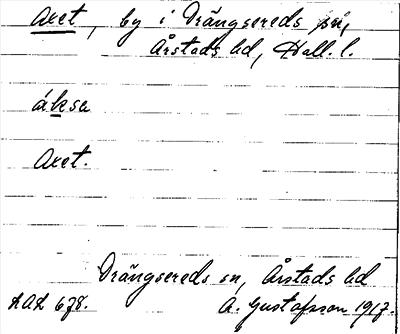 Axet, by i Drängsereds sn,
Årstads hd, Hall. l.
áksa
Axet.
Drängsereds sn, Årstads hd
LAL 678. A. Gustafsson 1917.